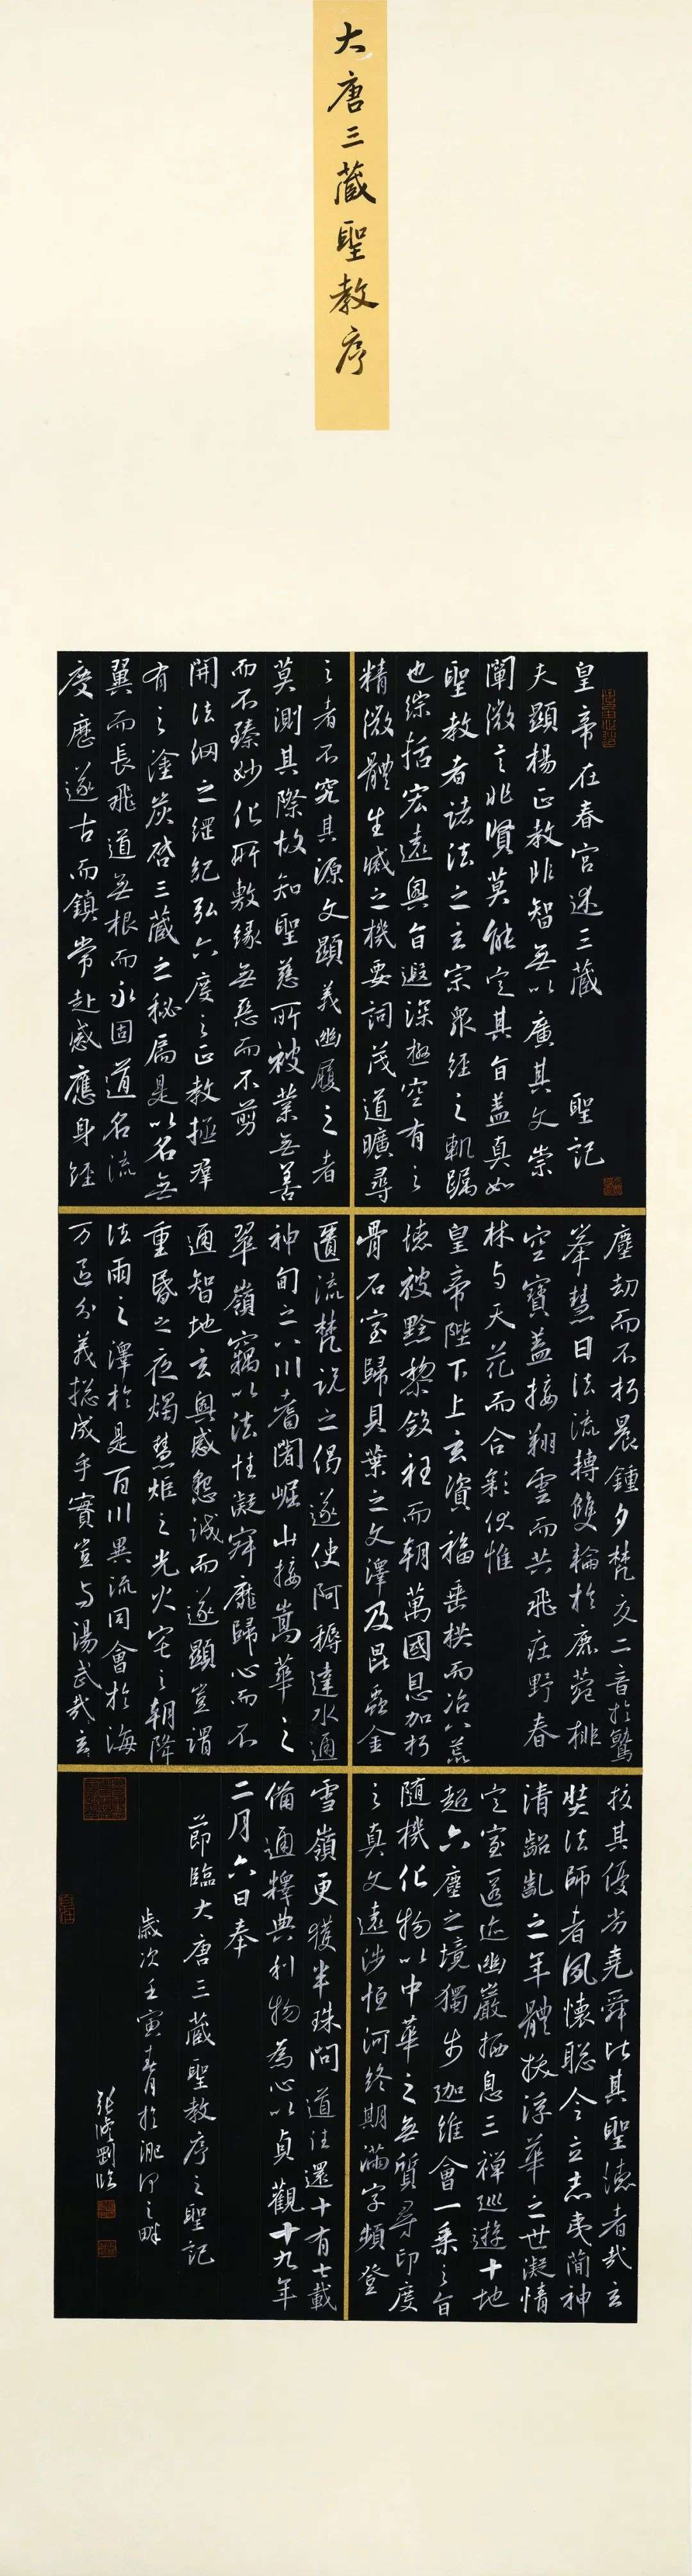 大唐三藏聖教序
皇帝在春宮述三藏 聖記
夫顯揚正教非智無以廣其文崇
闡微言非賢莫能定其旨蓋真如
聖教者諸法之玄宗眾經之軌躅
也綜括宏遠奧旨遐深極空有之
精微體生滅之機要詞茂道曠尋
之者不究其源文顯義幽履之者
莫測其際故知聖慈所被業無善
而不臻妙化所敷緣無惡而不剪
開法網之綱紀弘六度之正教拯群
有之塗炭啓三藏之秘扃是以名無
翼而長飛道無根而永固道名流
慶歷遂古而鎮常赴感應身經
塵劫而不朽晨鍾夕梵交二音於鷲
峯慧日法流轉雙輪於鹿菀排
空寶蓋接翔雲而共飛莊野春
林與天花而合彩伏惟
皇帝陛下上玄資福垂拱而治八荒
德被黔黎斂衽而朝萬國恩加朽
骨石室歸貝葉之文澤及昆蟲金
匱流梵說之偈遂使阿耨達水通
神甸之八川耆闍崛山接嵩華之
翠嶺竊以法性凝寂靡歸心而不
通智地玄奧感懇誠而遂顯豈謂
重昏之夜燭慧炬之光火宅之朝降
法雨之澤於是百川異流同會於海
萬區分義揔成乎實豈與湯武
校其優劣堯舜比其聖德者哉玄
奘法師者夙懷聰令立志夷簡神
清齠齔之年體拔浮華之世凝情
定室匿迹幽巖栖息三禪巡遊十地
超六塵之境獨步迦維會一乘之旨
隨機化物以中華之無質尋印度
之真文遠涉恒河終期滿字頻登
雪嶺更獲半珠問道往還十有七載
備通釋典利物為心以貞觀十九年
二月六日奉
節臨大唐三藏聖教序之聖記
歲次壬寅春月於淝河之畔